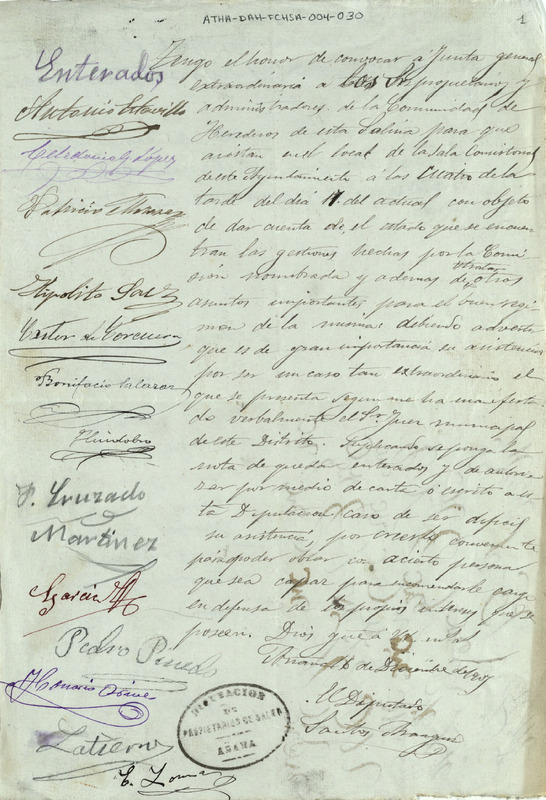 ATHA-DAH-FCHSA-004-030
1
Tengo el honor de convocar á Junta general
extraordinaria a los Sres propietarios y
administradores de la Comunidad de
Herederos de esta Salina para que
asistan en el local de la Sala Consistorial
de este Ayuntamiento a las cuatro de la
tarde del dia 11 del actual con objeto
de dar cuenta de el estado que se encuen
tran las gestiones hechas por la Comi
sion nombrada y ademas de tratar otros
asuntos importantes para el buen regi
men de la misma: debiendo advertir
que es de gran importancia su asistencia
por ser un caso tan extraordinario el
que se presenta segun me ha manifesta
do verbalmente el Sr Juez municipal
de este Distrito. Suplicando se ponga la
nota de quedar enterados y de autori
zar por medio de carta ó escrito a es
ta Diputacion caso de ser dificil
su asistencia, por creerlo conveniente
para poder obrar con acierto persona
que sea capaz para encomendarle cargo
en defensa de los propios intereses que se
poseen. Dios gue á V.
de Diciembre de
El Diputado
Santos
Enterados
Antonio
Celedonio G. López
Patricio
Hypolito Saez
Castor de Corcuera
Bonifacio Salazar
Huidobro
P. Cruzado
Martinez
Garcia
Pedro Pinedo
Honorio
E.
DIPUTACION
DE
PROPIETARIOS DE SALES
AÑANA